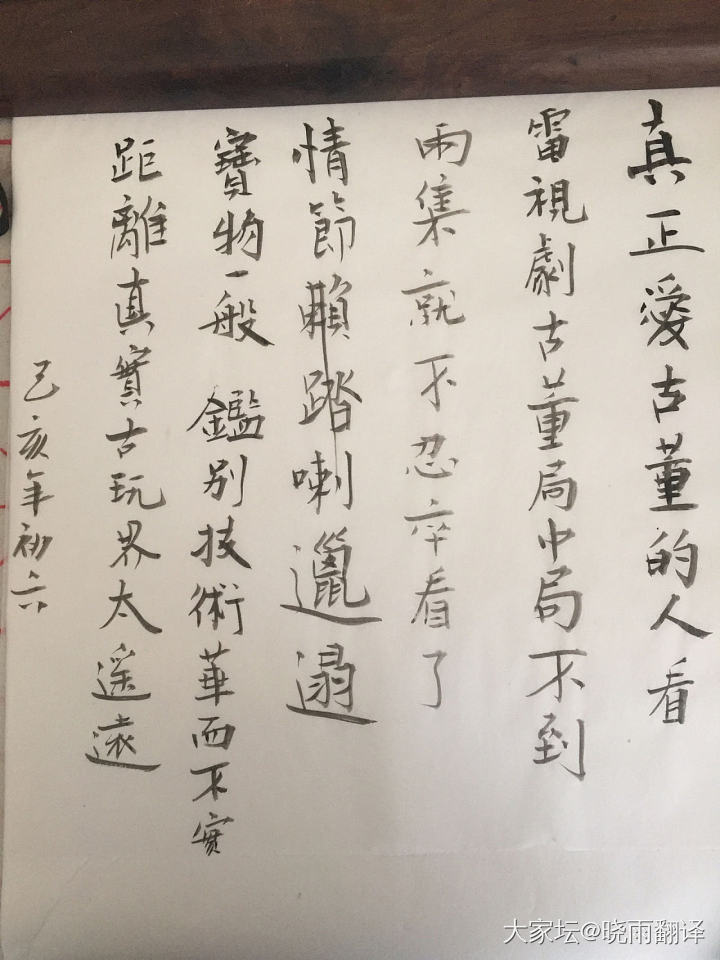 真正愛古董的人看
雷視劇古董局中局不到
兩集就不忍卒看了
情節賴踏喇邋遢
寶物一般 鑑別技術華而不實
距離真實古玩界太遥遠
己亥年初六
大家坛@晓雨翻译